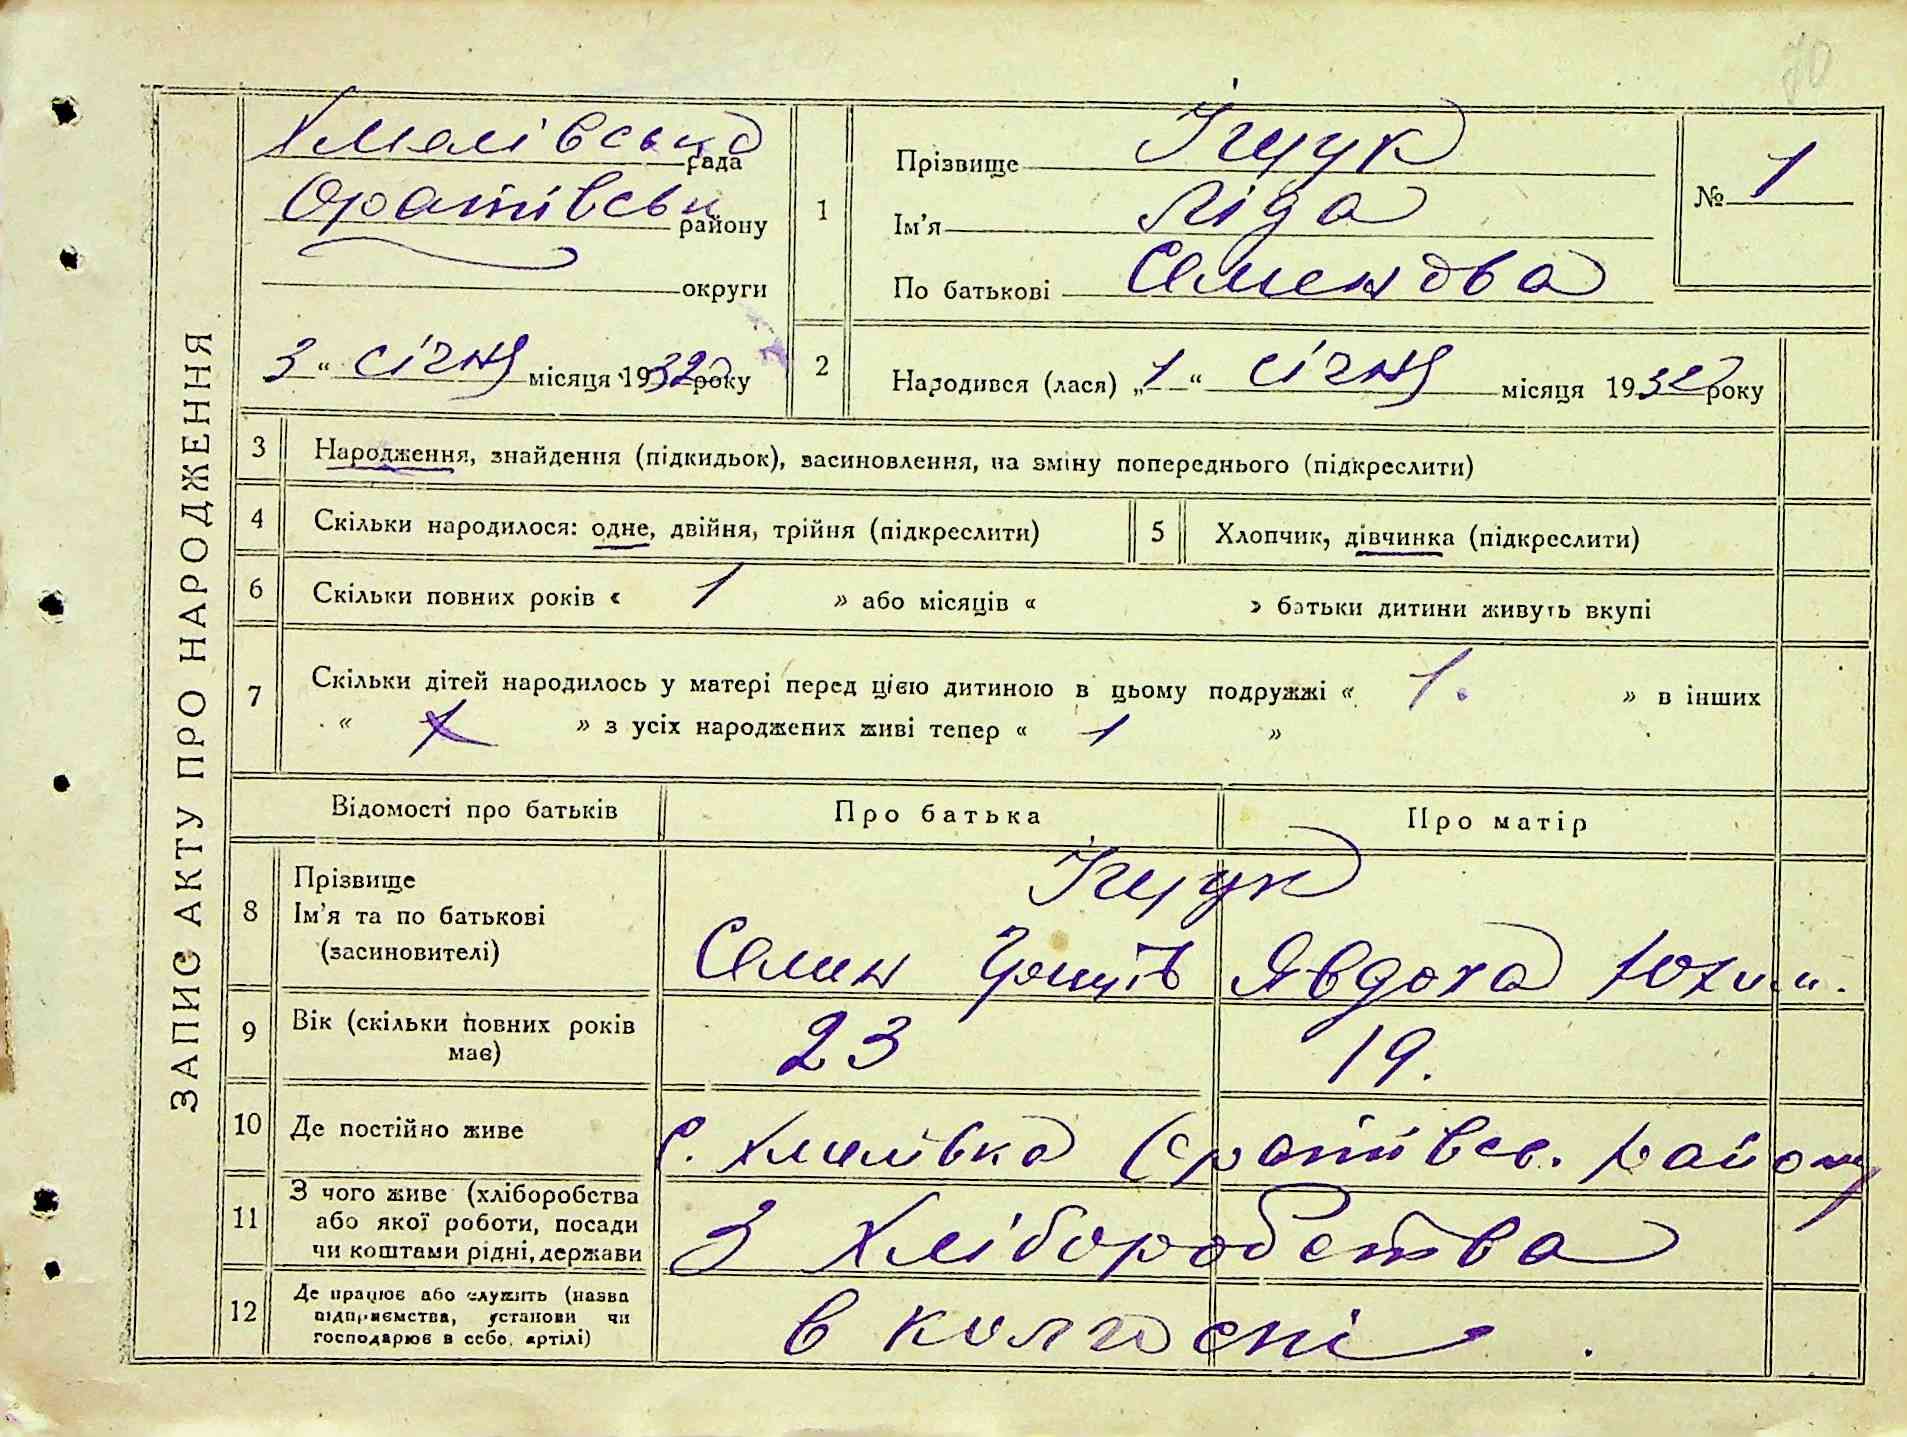 70
ЗАПИС АКТУ ПРО НАРОДЖЕННЯ
Хмелівська рада
Оратівськ району
округи
3 " січня місяця 1932 року
1
Прізвище Іщук
Ім'я Ліда
По батькові Семенова
№ 1
2
Народився (лася) „1 " січня місяця 1932 року
3 Народження, знайдення (підкидьок), засиновлення, на зміну попереднього (підкреслити)
4 Скільки народилося: одне, двійня, трійня (підкреслити)
5 Хлопчик, дівчинка (підкреслити)
6 Скільки повних років « 1 » або місяців « » батьки дитини живуть вкупі
7 Скільки дітей народилось у матері перед цією дитиною в цьому подружжі « 1. » в інших
« » з усіх народжених живі тепер « 1 »
Відомості про батьків Про батька Про матір
8 Прізвище
Ім'я та по батькові
(засиновителі)
Іщук
Семен Явдоха Юхим.
9 Вік (скільки повних років
має)
23 19.
10 Де постійно живе с. Хмелівка Оратівсь. району
11 З чого живе (хліборобства
або якої роботи, посади
чи коштами рідні, держави
З хліборобства
12 Де працює або служить (назва
підприємства, установи чи
господарює в себо, артілі)
в колгоспі.